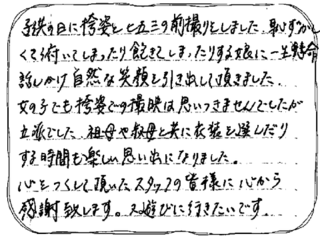 子供の日に袴姿と七五三の前撮りをしました。恥ずかし
くてう付いてしまったり飽きてしまったりする娘に一生懸命
話しかけ自然な笑顔を引き出して頂きました。
女の子でも袴姿での撮影は思いつきませんでしたが
立派でした。祖母や叔母と共に衣装を選んだり
する時間も楽しい思い出になりました。
心をつくして頂いたスタッフの皆様に心から
感謝致します。又遊びに行きたいです。